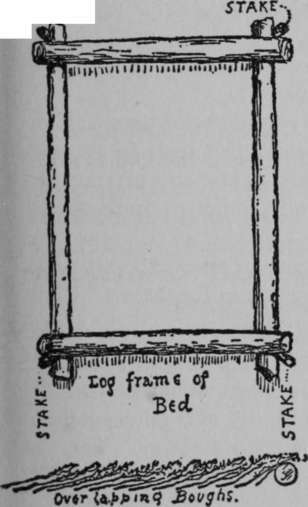 STAKE
Log frame of
Bed
STAKE
STAKE
Overlapping Boughs.